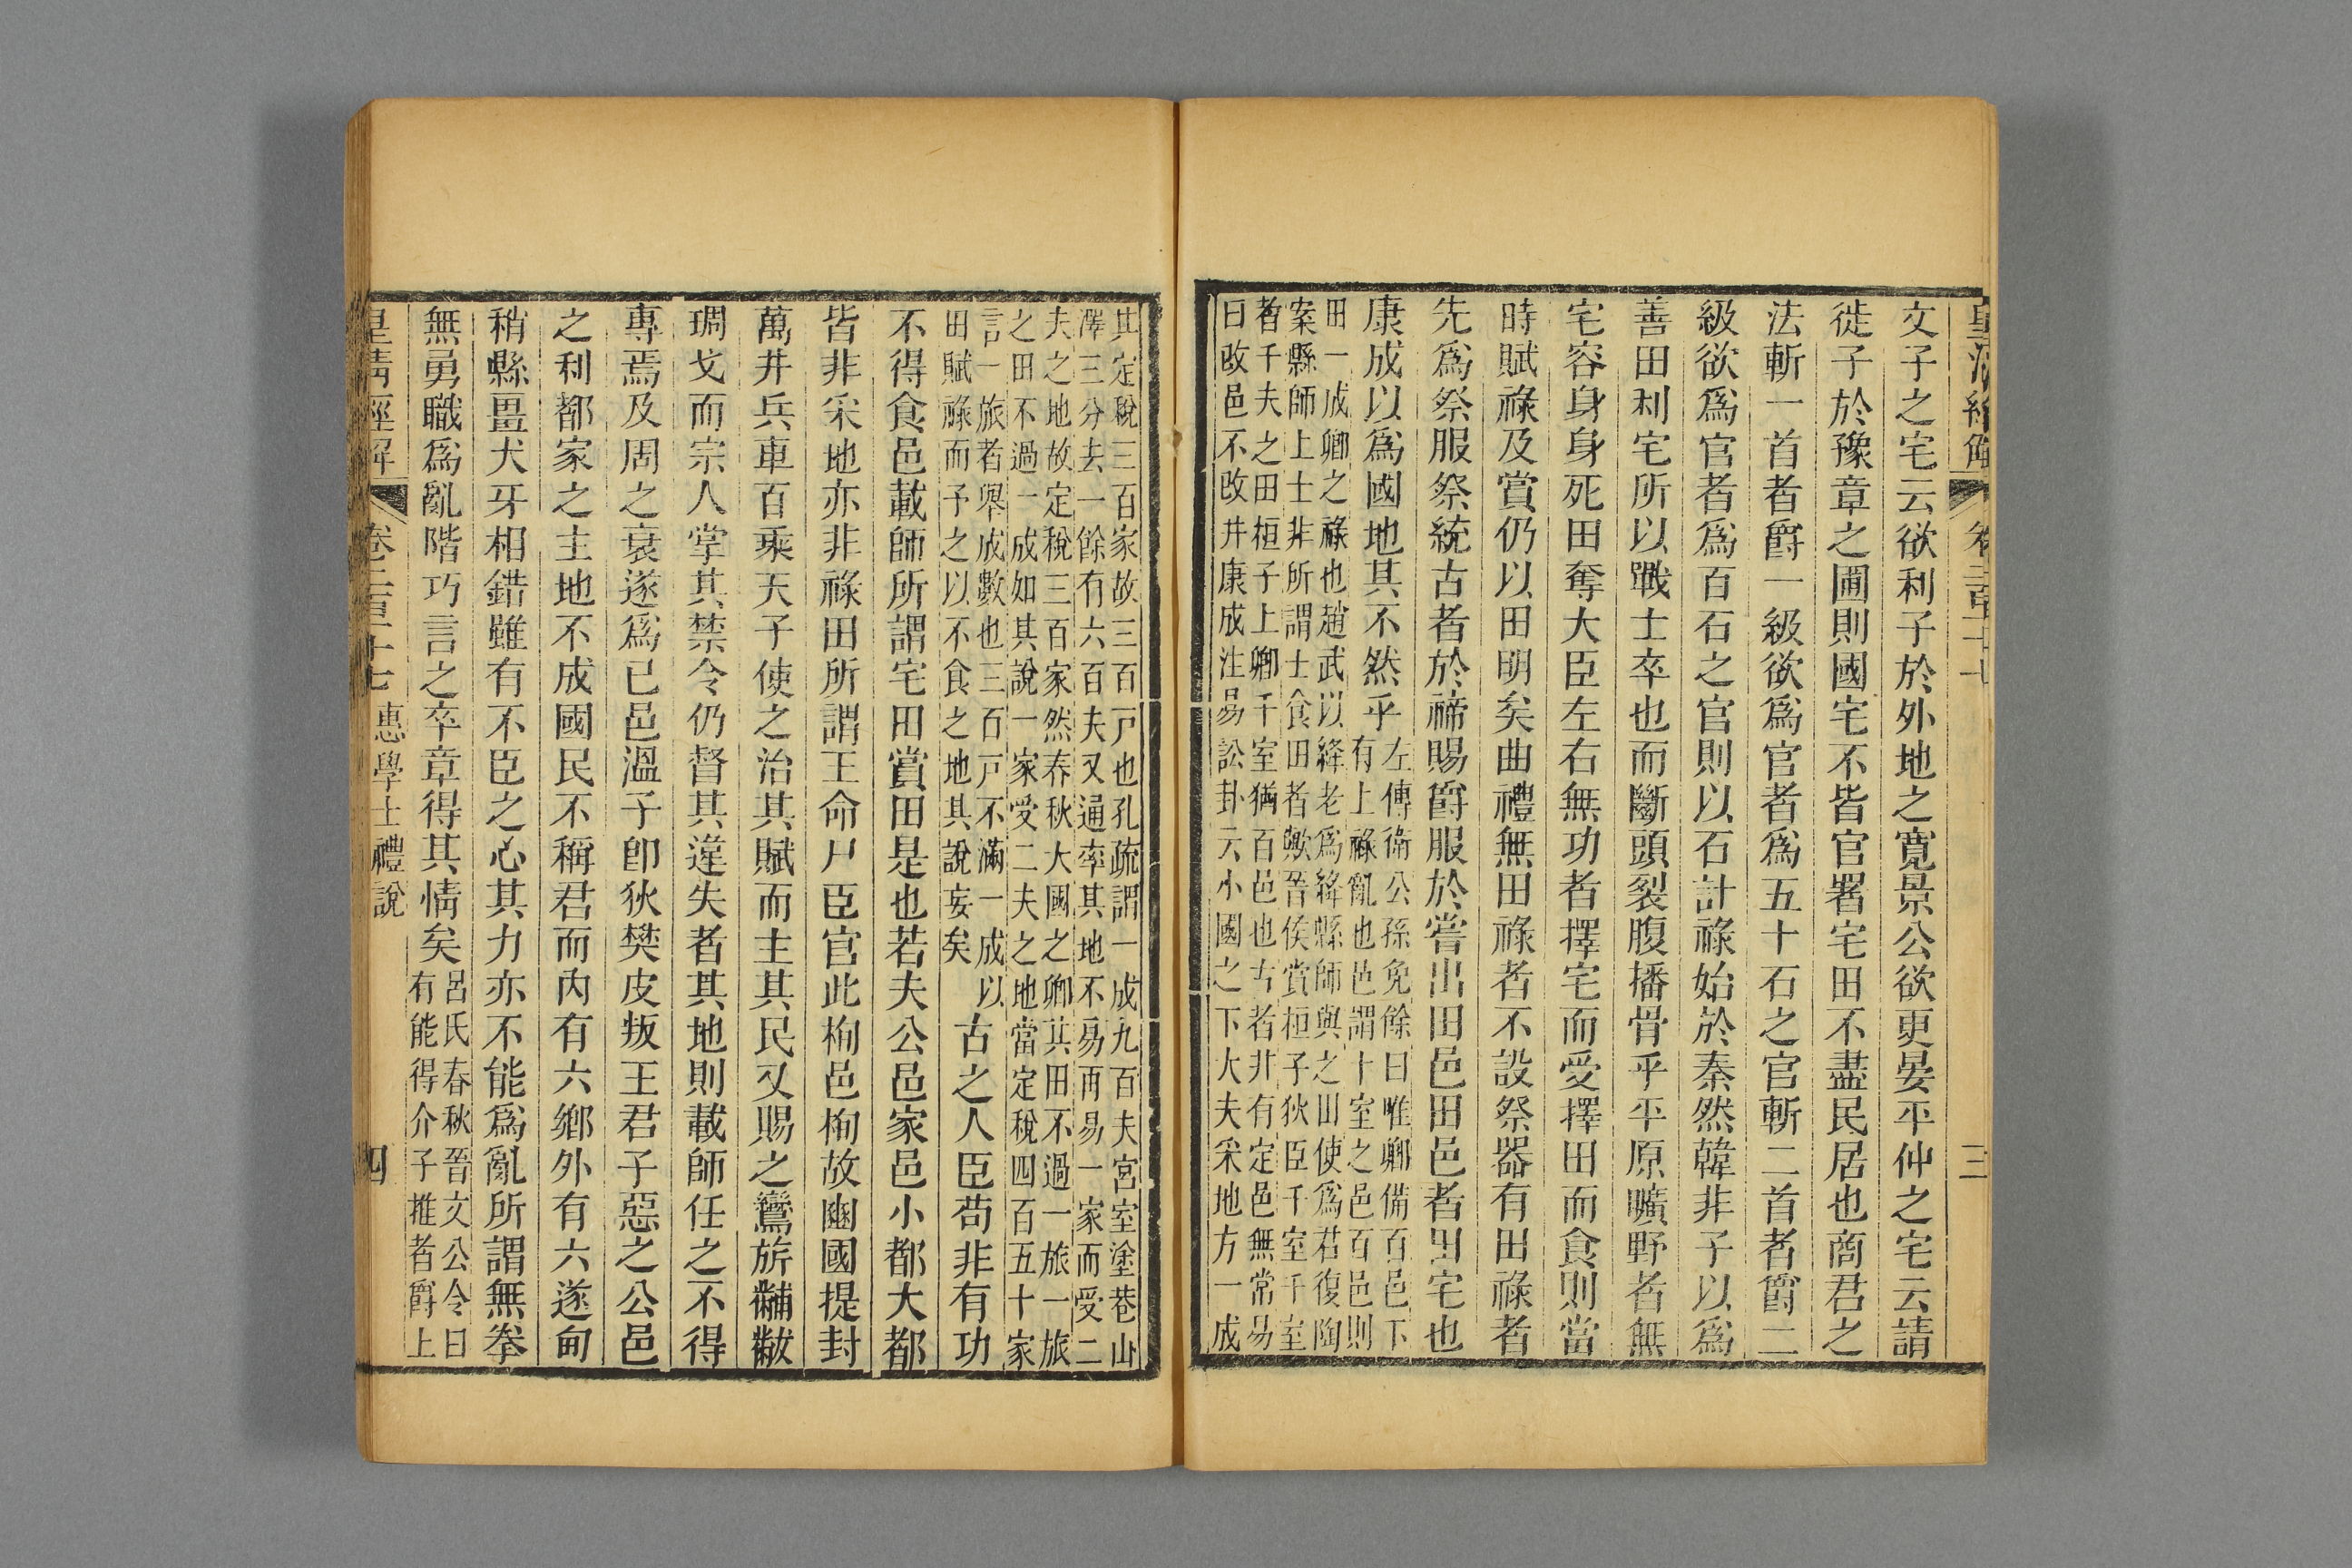 皇清經解
三
文子之宅云欲利子於外地之寬景公欲更晏平仲之宅云請
徙子於豫章之圃則國宅不皆官署宅田不盡民居也商君之
法斬一首者爵一級欲爲官者爲五十石之官斬二首者爵二
級欲爲官者爲百石之官則以石計祿始於秦然韓非子以爲
善田利宅所以戰士卒也而斷頭裂腹播骨乎平原曠野者無
宅容身身死田奪大臣左右無功者擇宅而受擇田而食則當
時賦祿及賞仍以田明矣曲禮無田祿者不設祭器有田祿者
先爲祭服祭統古者於禘賜爵服於嘗出田邑田邑者田宅也
康成以爲國地其不然乎
左傳衛公孫免餘曰唯卿備百邑下
有上祿亂也邑謂十室之邑百邑則
田一成卿之祿也趙武以絳老爲絳縣師與之田使爲君復陶
案縣師上士非所謂士食田者歟晉侯賞桓子狄臣千室千室
者千夫之田桓子上卿千室猶百邑也古者井有定邑無常易
曰改邑不改井康成注易訟卦云小國之下大夫采地方一成
其定稅三百家故三百戸也孔疏謂一成九百夫宮室塗巷山
澤三分去一餘有六百夫又通率其地不易再易一家而受二
夫之地故定稅三百家然春秋大國之卿其田不過一旅一旅
之田不過一成如其說一家受二夫之地當定稅四百五十家
言一旅者舉成數也三百戸不滿一成以
田賦祿而予之以不食之地其說妄矣
古之人臣苟非有功
不得食邑載師所謂宅田賞田是也若夫公邑家邑小都大都
皆非采地亦非祿田所謂王命尸臣官此栒邑栒故豳國提封
萬井兵車百乘天子使之治其賦而主其民又賜之鸞旂黼黻
琱戈而宗人掌其禁令仍督其違失者其地則載師任之不得
專焉及周之衰遂爲已邑溫子卽狄樊皮叛王君子惡之公邑
之利都家之主地不成國民不稱君而內有六鄉外有六遂甸
稍縣畺犬牙相錯雖有不臣之心其力亦不能爲亂所謂無拳
無勇職爲亂階巧言之卒章得其情矣
呂氏春秋晉文公令曰
有能得介子推者爵上
皇清經解
卷二百二十七
惠學士禮說
四